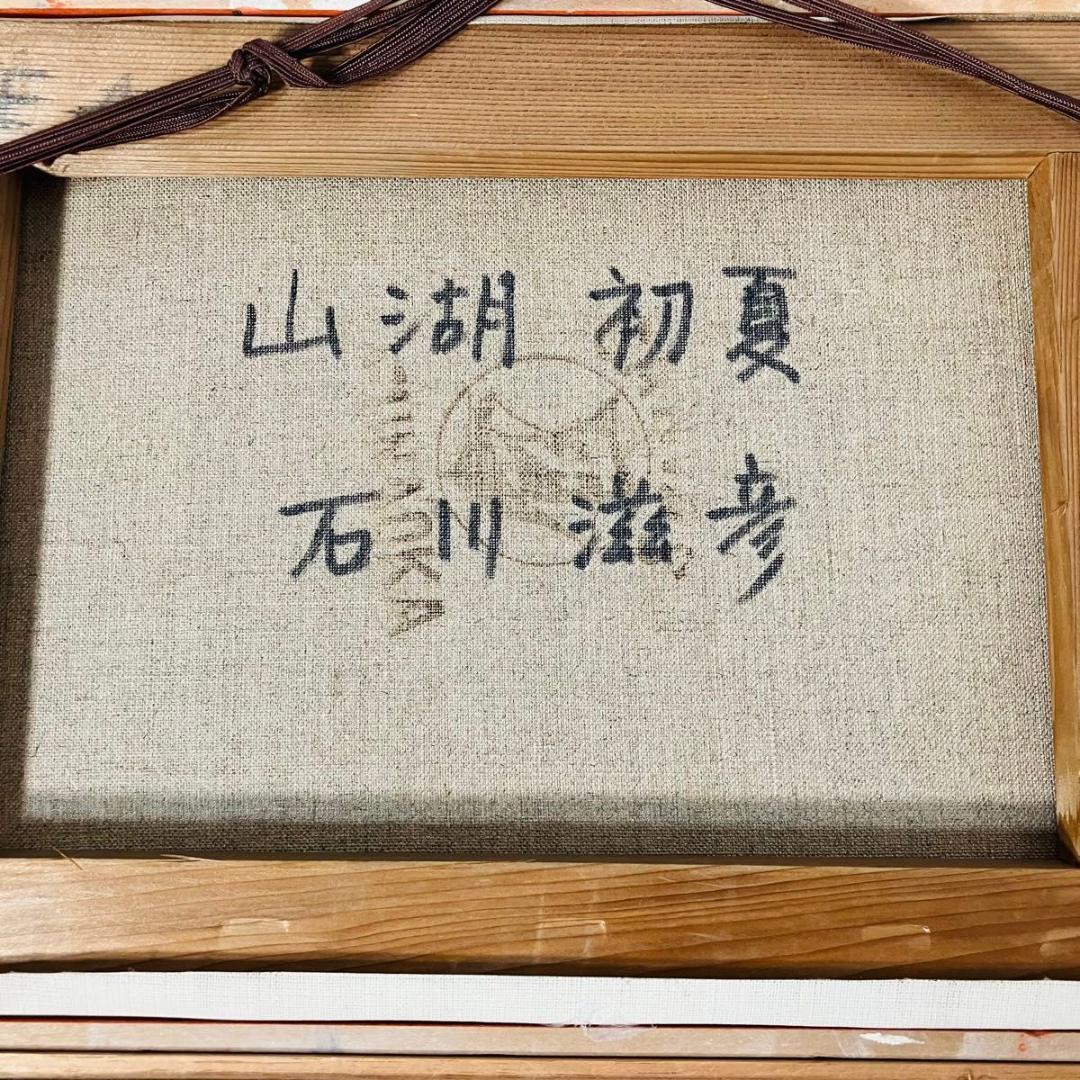 山湖 初夏
石川 滋彦